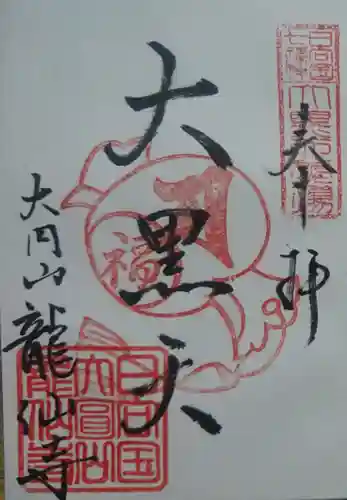 奉拝
大黒天
大円山龍仙寺
福
日向国
大圓山
龍仙寺